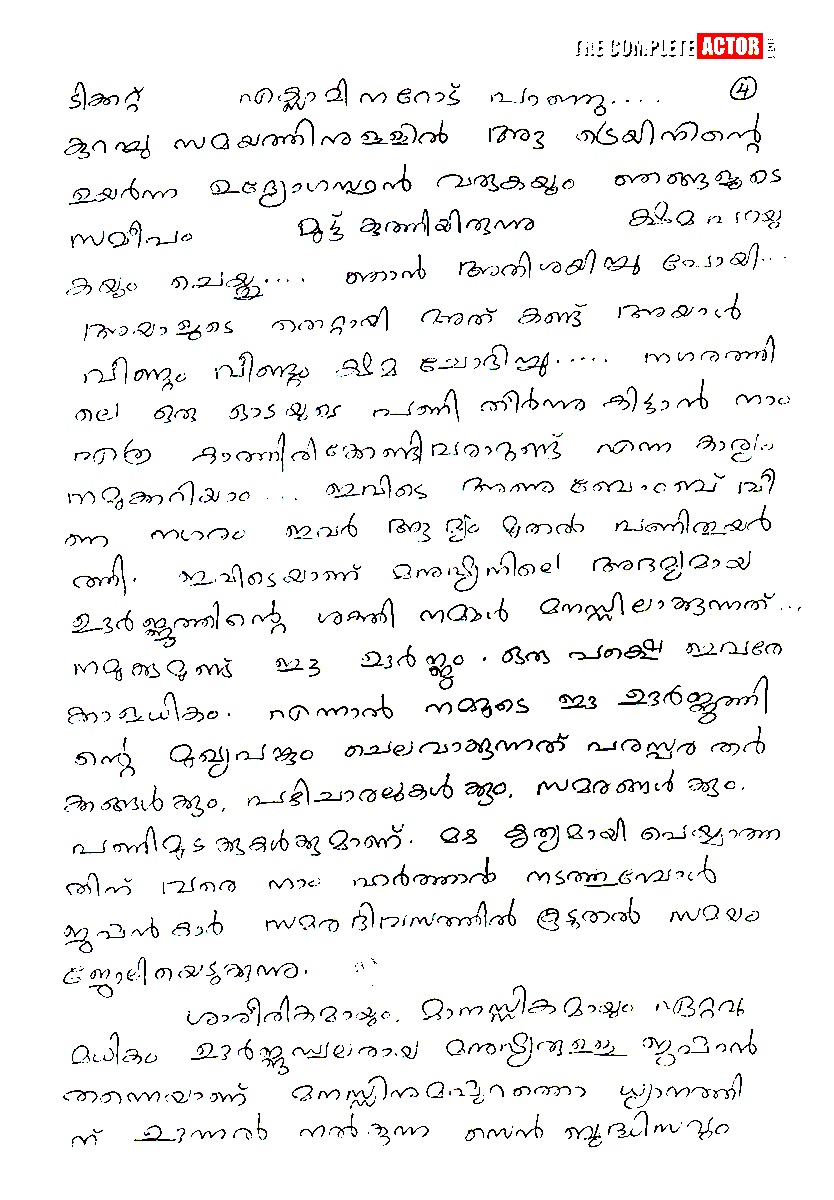 THE COMPLETE ACTOR
ടിക്കറ്റ് എക്സാമിനറോട് പറഞ്ഞു.... 4
കുറച്ചു സമയത്തിനുള്ളിൽ ആ ട്രെയിനിന്റെ
ഉയർന്ന ഉദ്യോഗസ്ഥൻ വരുകയും ഞങ്ങളുടെ
സമീപം മുട്ട് കുത്തിയിരുന്നു ക്ഷമ പറയു
കയും ചെയ്തു.... ഞാൻ അതിശയിച്ചു പോയി...
അയാളുടെ തെറ്റായി അത് കണ്ട് അയാൾ
വീണ്ടും വീണ്ടും ക്ഷമ ചോദിച്ചു..... നഗരത്തി
ലെ ഒരു ഓടയുടെ പണി തീർന്നു കിട്ടാൻ നാം
എത്ര കാത്തിരിക്കേണ്ടിവരാറുണ്ട് എന്ന കാര്യം
നമുക്കറിയാം... ഇവിടെ അണു ബോംബ് വീ
ണ നഗരം ഇവർ ആദ്യം മുതൽ പണിതുയർ
ത്തി. ഇവിടെയാണ് മനുഷ്യനിലെ അദൃശ്യമായ
ഊർജ്ജത്തിന്റെ ശക്തി നമ്മൾ മനസ്സിലാക്കുന്നത്...
നമുക്കുമുണ്ട് ഈ ഊർജ്ജം. ഒരു പക്ഷെ ഇവരേ
ക്കാളധികം. എന്നാൽ നമ്മുടെ ഈ ഊർജ്ജത്തി
ന്റെ മുഖ്യപങ്കും ചെലവാക്കുന്നത് പരസ്പര തർ
ക്കങ്ങൾക്കും, പഴിചാരലുകൾക്കും, സമരങ്ങൾക്കും,
പണിമുടക്കുകൾക്കുമാണ്. മഴ കൃത്യമായി പെയ്യാത്ത
തിന് വരെ നാം ഹർത്താൽ നടത്തുമ്പോൾ
ജപ്പാൻകാർ സമരദിവസത്തിൽ കൂടുതൽ സമയം
ജോലിയെടുക്കുന്നു.
ശാരീരികമായും, മാനസ്സികമായും ഏറ്റവു
മധികം ഊർജ്ജസ്വലരായ മനുഷ്യരുള്ള ജപ്പാൻ
തന്നെയാണ് മനസ്സിനുമപ്പുറത്തെ ധ്യാനത്തി
ന് ഊന്നൽ നൽകുന്ന സെൻ ബുദ്ധിസവും